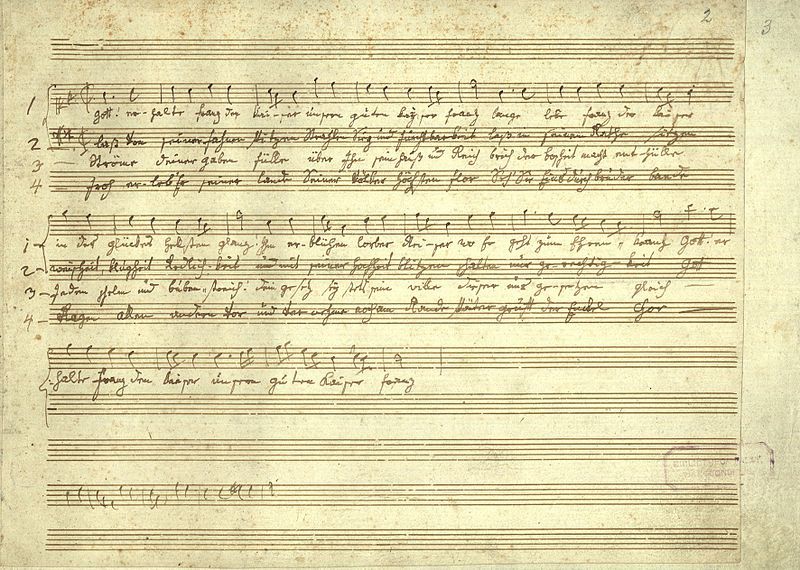 2 3
1 Gott! er-halte Franz den Kai-ser unsern guten Kaÿser Franz lange lebe Franz der Kaiser
2 laß von seiner fahnen Spitzen Strahlen Sieg und fruchtbarkeit laß in seinem Rathe Sitzen
3 Ströme deiner gaben fülle über Ihn sein Hauß und Reich brich der boßheit macht ent-hülle
4 froh er-leb Er seiner lande Seiner Völker höchsten flor Seh' Sie Eins durch bruder bande
1 in des glückes hellsten glanz! Ihm er-blühen lorber Rei-ser wo Er geht zum Ehren-kranz Gott! er
2 weisheit klugheit Redlich-keit und mit seiner hochheit blitzen schalten nur ge-rechtig-keit Gott
3 Jeden schelm und buben-streich! dein gesetz seÿ stets sein wille dieser uns ge-setzen gleich
4 Ragen allen andern vor und ver-nehme noch am Rande Später gruft der Enkel Chor
halte Franz den Kaiser unsern guten Kaiser Franz